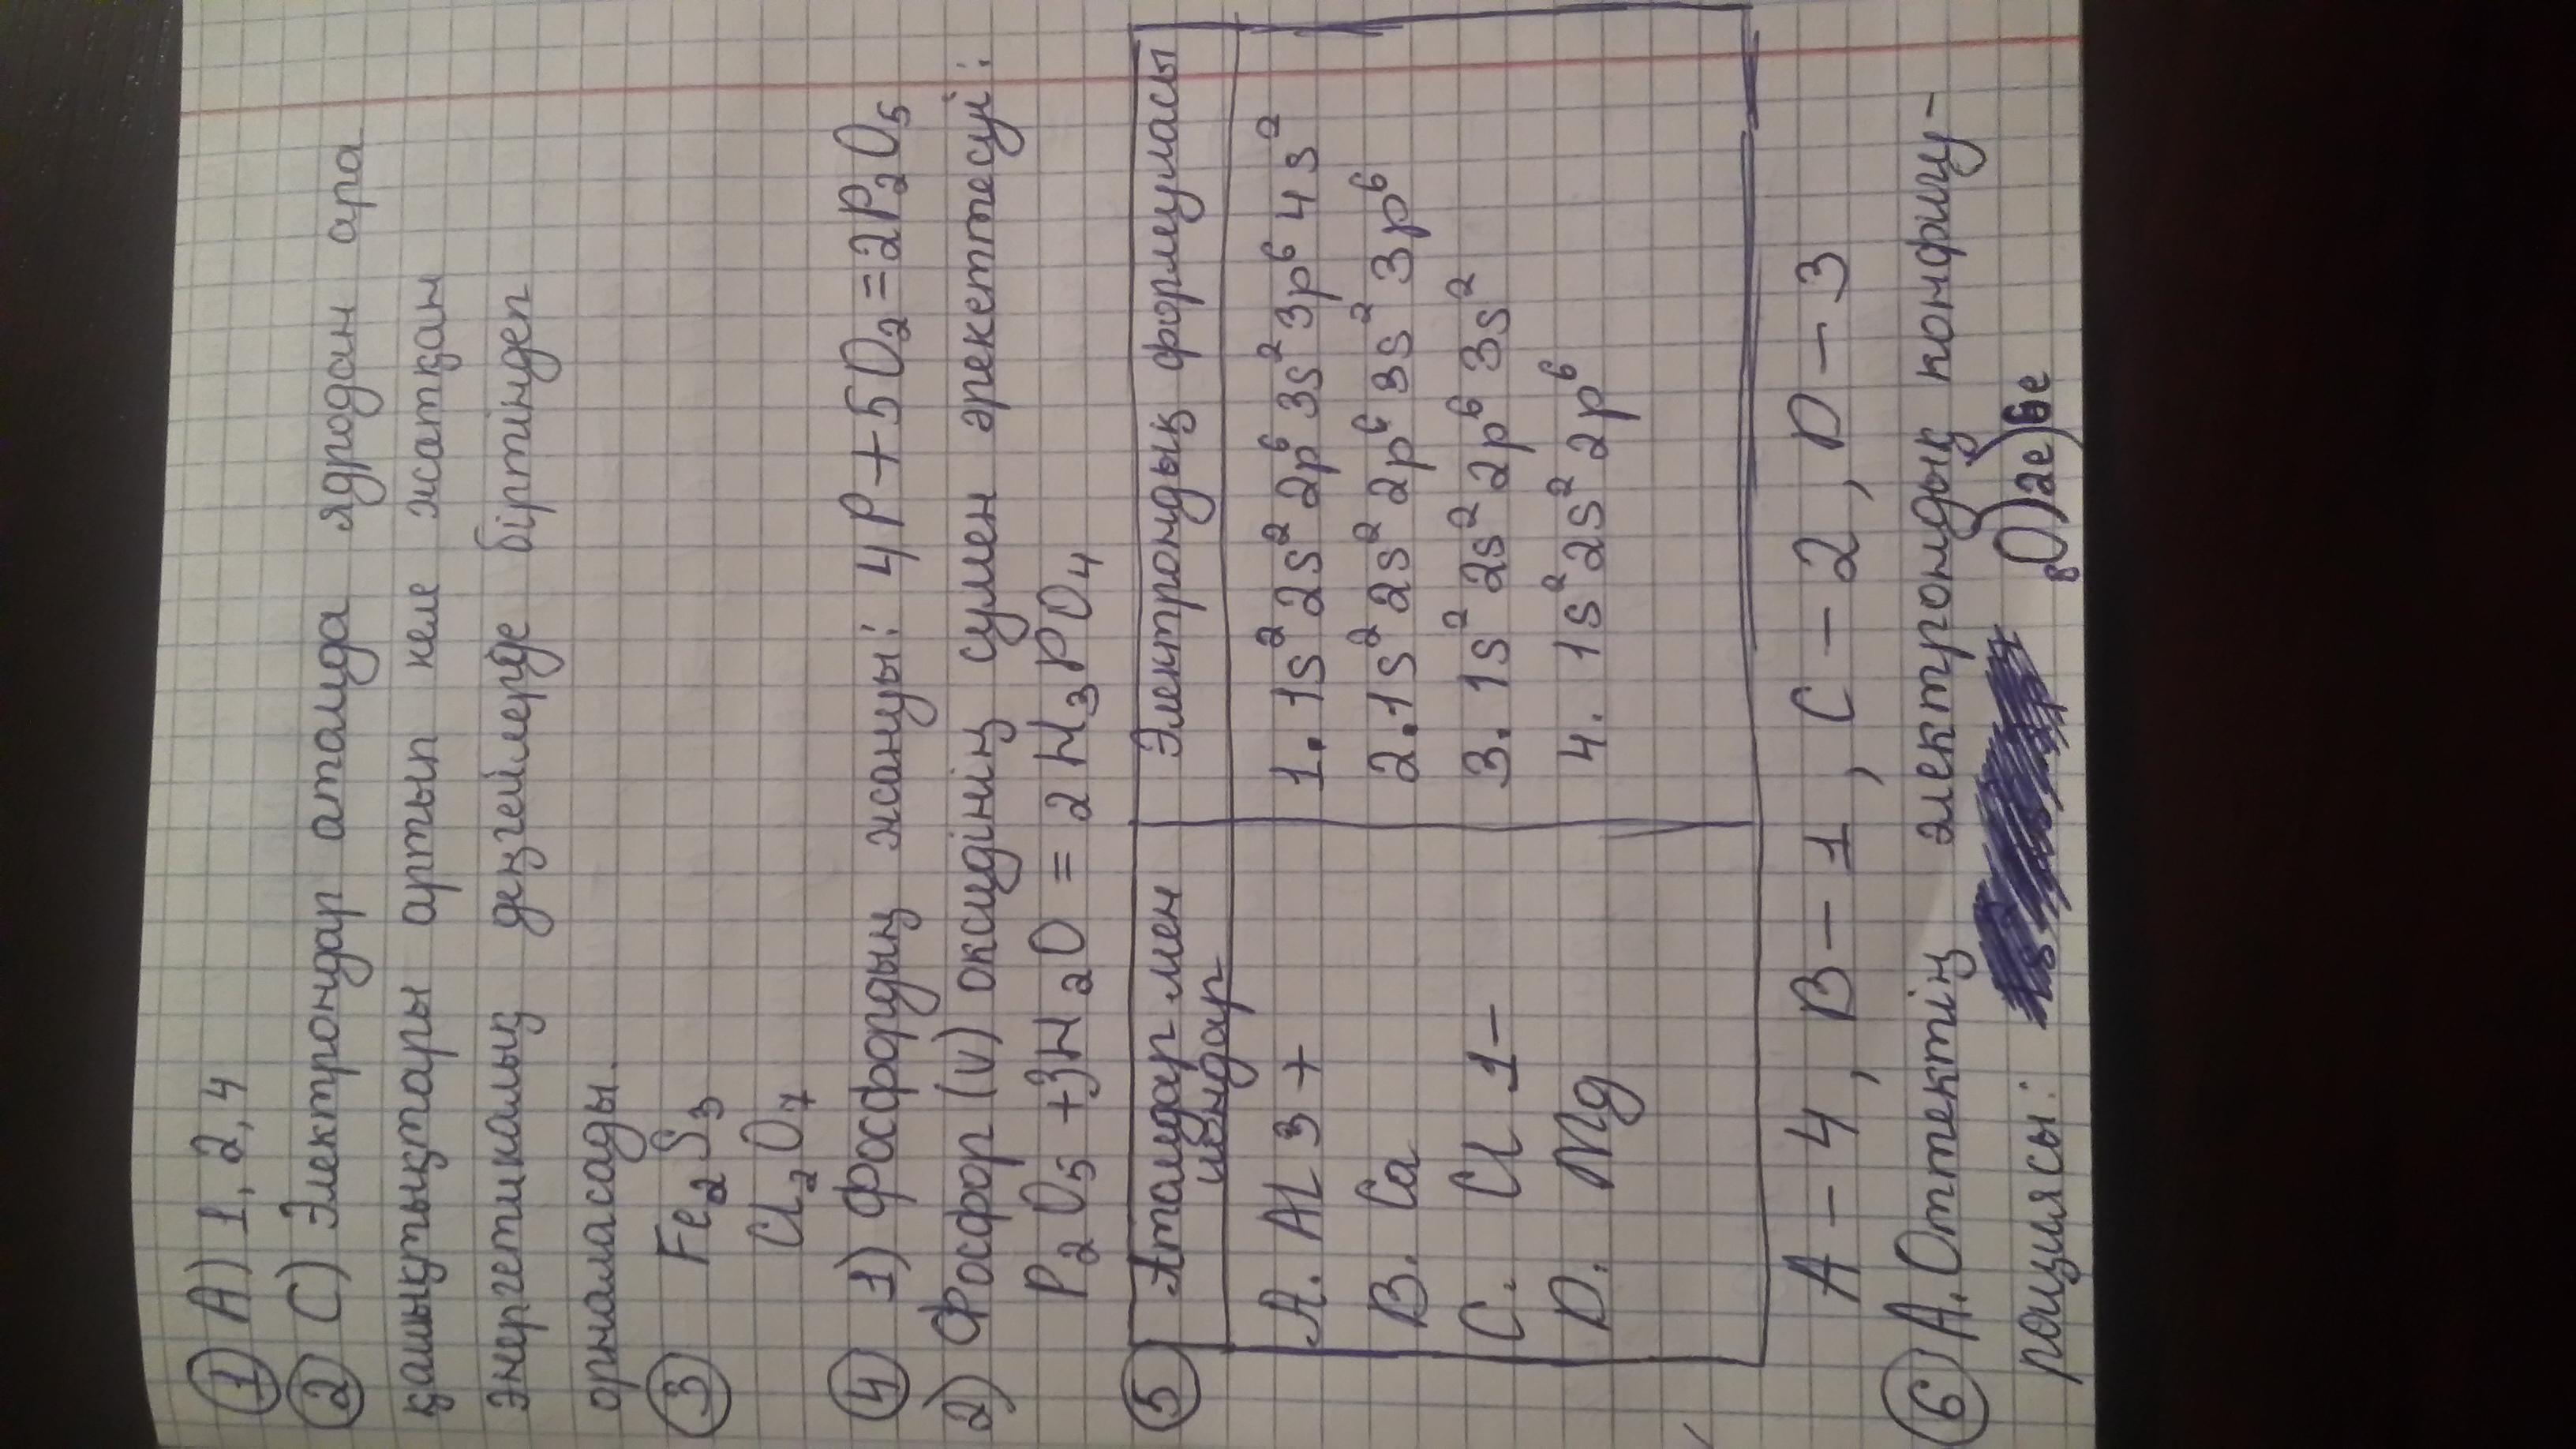 ① А) 1, 2, 4
② С) Электрондар атомда ядродан ара
қашықтықтары артып келе жатқан
энергетикалық деңгейлерде біртіндеп
орналасады.
③ Fe₂S₃
Cl₂O₇
④ 1) Фосфордың жануы: 4P+5O₂=2P₂O₅
2) Фосфор (v) оксидінің сумен әрекеттесуі:
P₂O₅+3H₂O=2H₃PO₄
⑤ Атомдар мен иондар Электрондық формуласы
A. Al 3+ 1. 1s² 2s² 2p⁶ 3s² 3p⁶ 4s²
B. Ca 2. 1s² 2s² 2p⁶ 3s² 3p⁶
C. Cl 1- 3. 1s² 2s² 2p⁶ 3s²
D. Mg 4. 1s² 2s² 2p⁶
A-4, B-1, C-2, D-3
⑥ А. Оттектің электрондық конфигу-
рациясы: ₈O)2e)6e